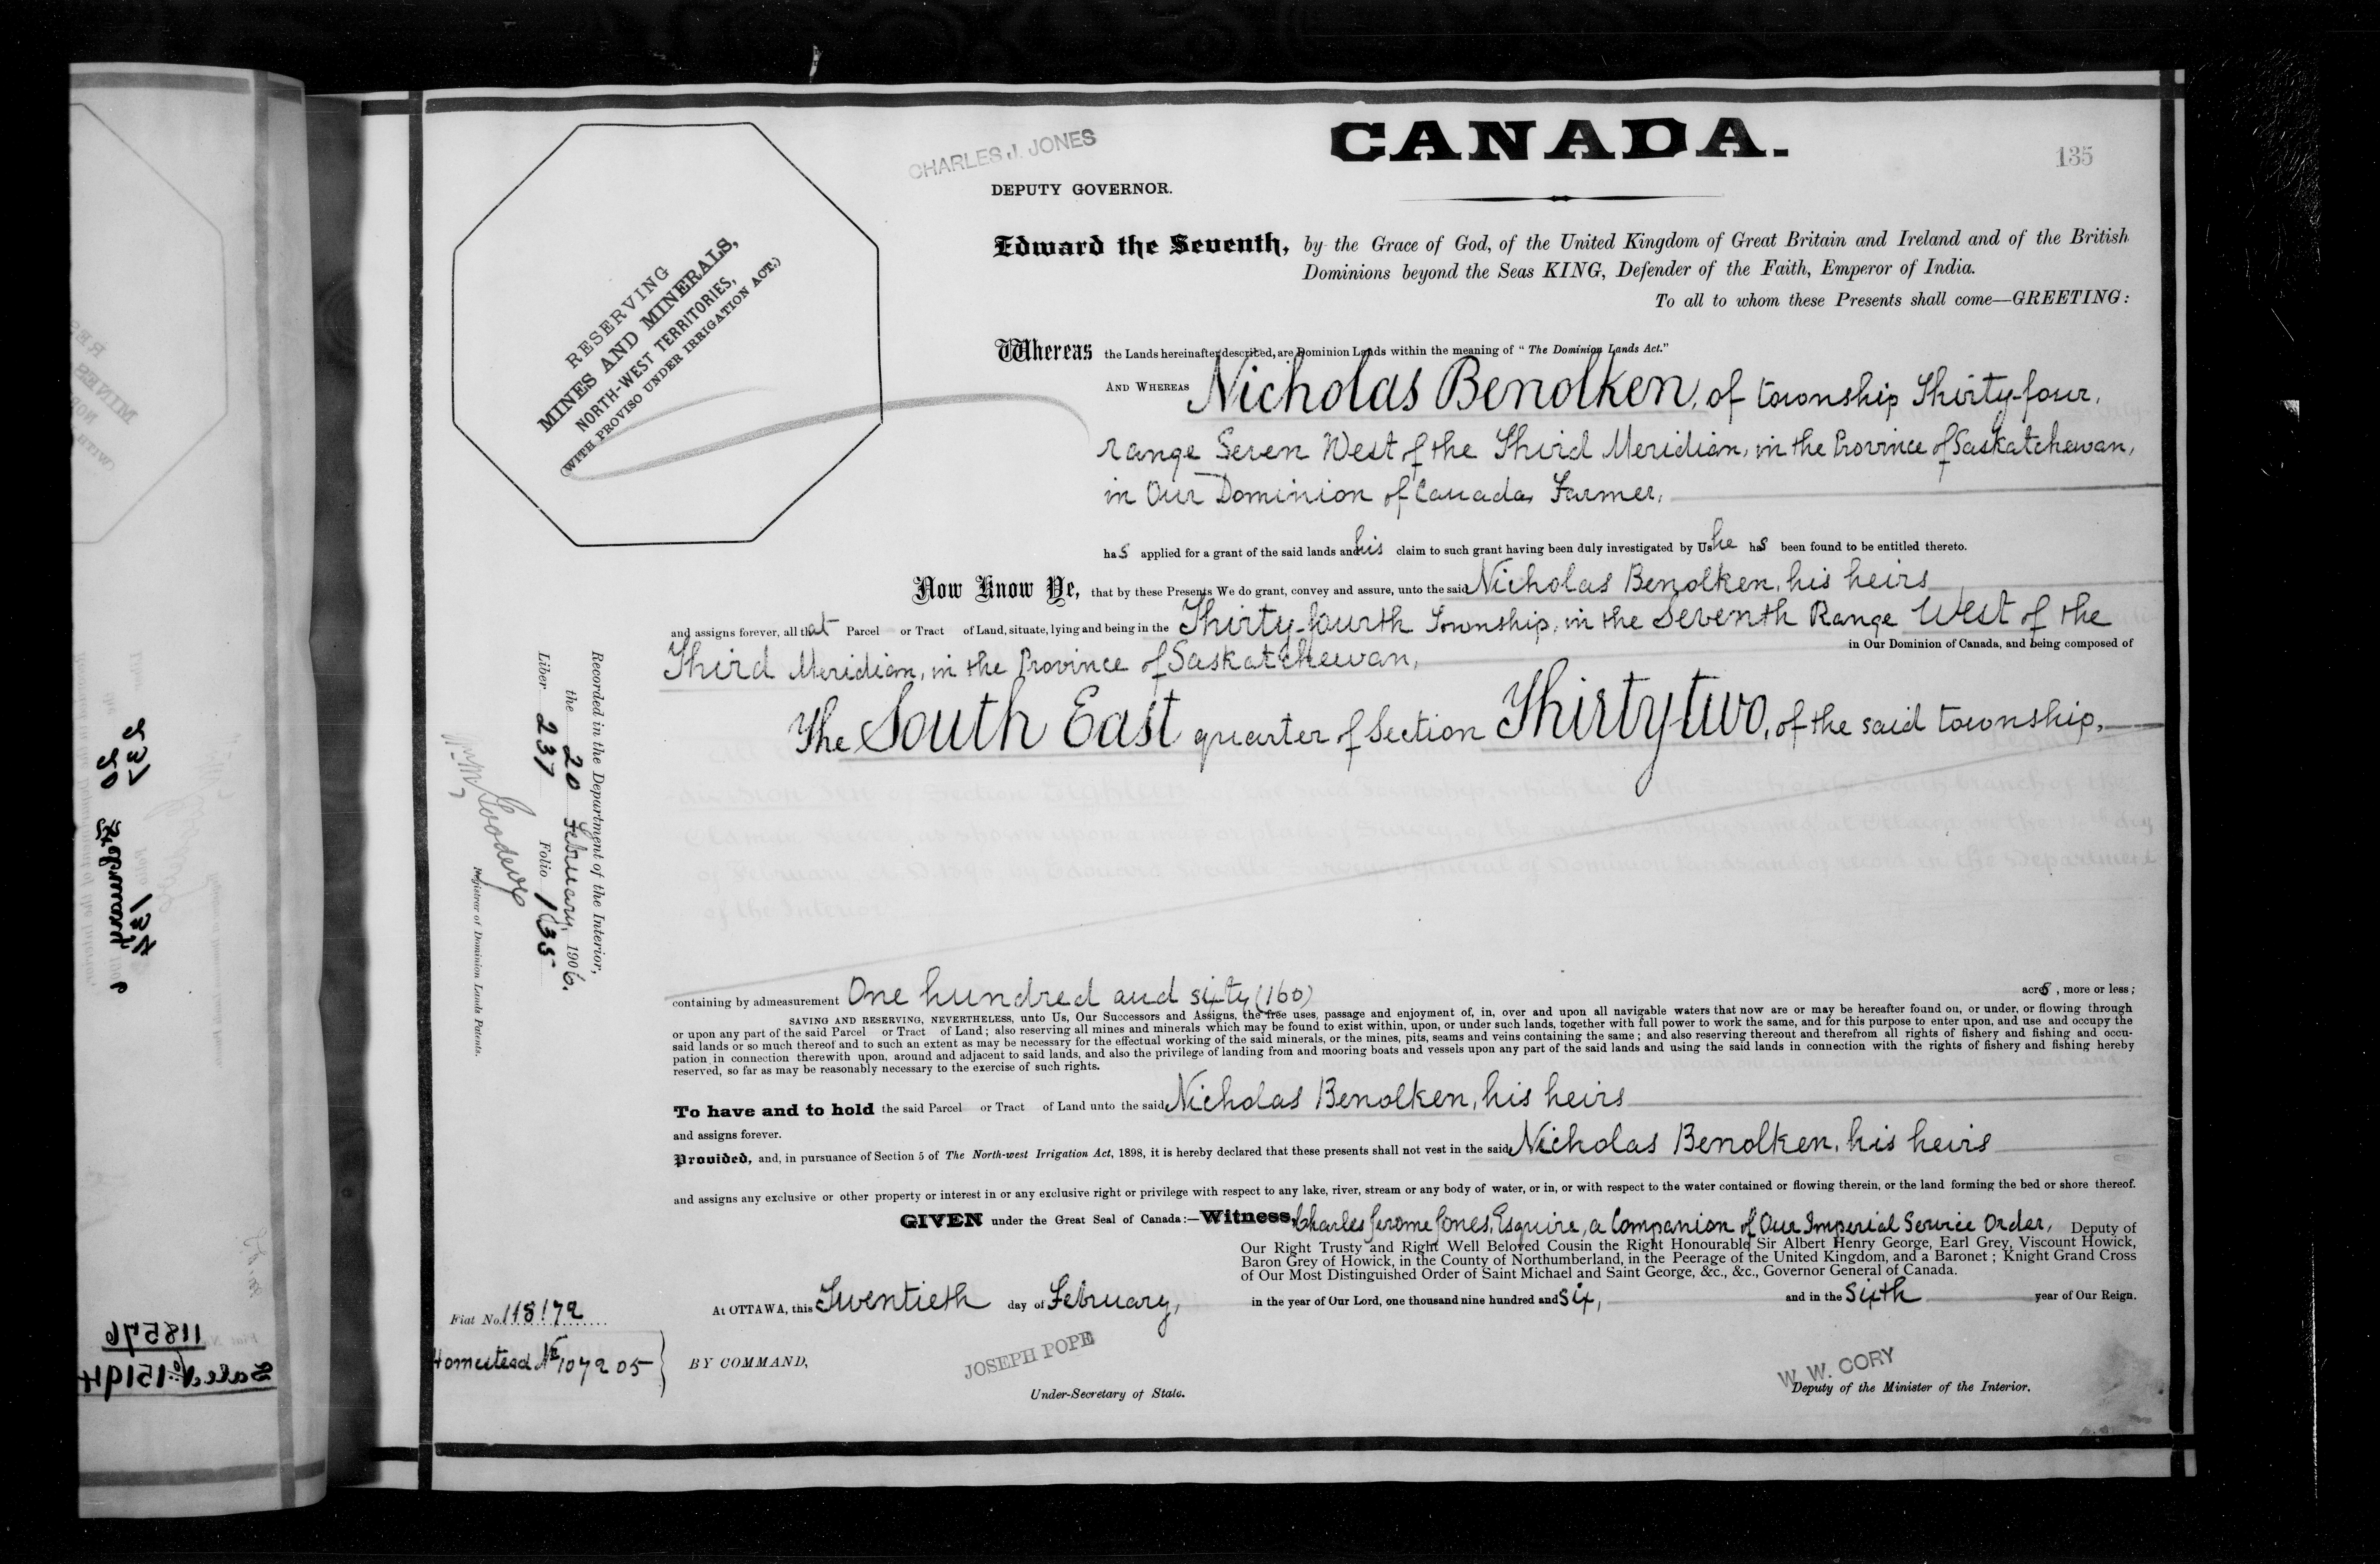 CANADA.
135
CHARLES J. JONES
DEPUTY GOVERNOR.
RESERVING
MINES AND MINERALS,
NORTH-WEST TERRITORIES,
(WITH PROVISO UNDER IRRIGATION ACT.)
Edward the Seventh, by the Grace of God, of the United Kingdom of Great Britain and Ireland and of the British
Dominions beyond the Seas KING, Defender of the Faith, Emperor of India.
To all to whom these Presents shall come—GREETING:
Whereas the Lands hereinafter described, are Dominion Lands within the meaning of "The Dominion Lands Act."
AND WHEREAS Nicholas Benolken, of township Thirty-four,
range Seven West of the Third Meridian, in the Province of Saskatchewan,
in Our Dominion of Canada, Farmer,
has applied for a grant of the said lands and his claim to such grant having been duly investigated by Us he has been found to be entitled thereto.
Now Know Ye, that by these Presents We do grant, convey and assure, unto the said Nicholas Benolken, his heirs
and assigns forever, all that Parcel or Tract of Land, situate, lying and being in the Thirty-fourth Township, in the Seventh Range West of the
Third Meridian, in the Province of Saskatchewan, in Our Dominion of Canada, and being composed of
The South East quarter of Section Thirty-two, of the said township,
containing by admeasurement One hundred and sixty (160) acres, more or less;
SAVING AND RESERVING, NEVERTHELESS, unto Us, Our Successors and Assigns, the free uses, passage and enjoyment of, in, over and upon all navigable waters that now are or may be hereafter found on, or under, or flowing through
or upon any part of the said Parcel or Tract of Land; also reserving all mines and minerals which may be found to exist within, upon, or under such lands, together with full power to work the same, and for this purpose to enter upon, and use and occupy the
said lands or so much thereof and to such an extent as may be necessary for the effectual working of the said minerals, or the mines, pits, seams and veins containing the same; and also reserving thereout and therefrom all rights of fishery and fishing and occu-
pation in connection therewith upon, around and adjacent to said lands, and also the privilege of landing from and mooring boats and vessels upon any part of the said lands and using the said lands in connection with the rights of fishery and fishing hereby
reserved, so far as may be reasonably necessary to the exercise of such rights.
To have and to hold the said Parcel or Tract of Land unto the said Nicholas Benolken, his heirs
and assigns forever.
Provided, and, in pursuance of Section 5 of The North-west Irrigation Act, 1898, it is hereby declared that these presents shall not vest in the said Nicholas Benolken, his heirs
and assigns any exclusive or other property or interest in or any exclusive right or privilege with respect to any lake, river, stream or any body of water, or in, or with respect to the water contained or flowing therein, or the land forming the bed or shore thereof.
GIVEN under the Great Seal of Canada:—Witness, Charles Jerome Jones, Esquire, a Companion of Our Imperial Service Order, Deputy of
Our Right Trusty and Right Well Beloved Cousin the Right Honourable Sir Albert Henry George, Earl Grey, Viscount Howick,
Baron Grey of Howick, in the County of Northumberland, in the Peerage of the United Kingdom, and a Baronet; Knight Grand Cross
of Our Most Distinguished Order of Saint Michael and Saint George, &c., &c., Governor General of Canada.
At OTTAWA, this Twentieth day of February, in the year of Our Lord, one thousand nine hundred and six, and in the Sixth year of Our Reign.
BY COMMAND,
JOSEPH POPE
Under-Secretary of State.
W. W. CORY
Deputy of the Minister of the Interior.
Recorded in the Department of the Interior,
the 20 February, 1906.
Liber 237 Folio 135
Registrar of Dominion Lands Patents.
Fiat No. 118172
Homestead No 107205
118576
Sale No 15194